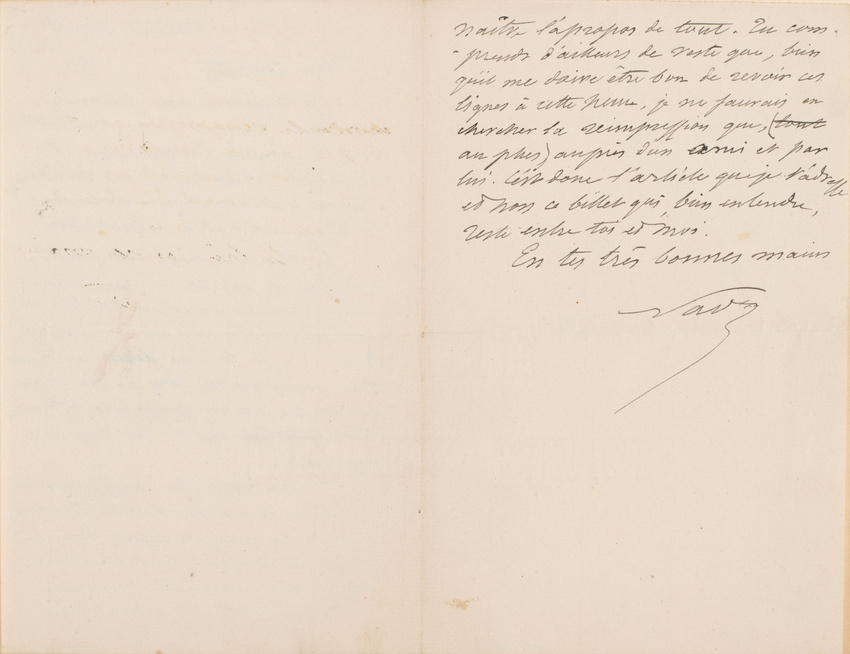 naître l'apropos de tout. Tu com-
-prends d'ailleurs de reste que, bien
qu'il me doive être bon de revoir ces
lignes à cette heure, je ne saurais en
chercher la réimpression que, (tout
au plus) auprès d'un ami et par
lui. C'est donc l'article que je t'adresse
et non ce billet qui, bien entendu,
reste entre toi et moi.
En tes très bonnes mains
Nadar